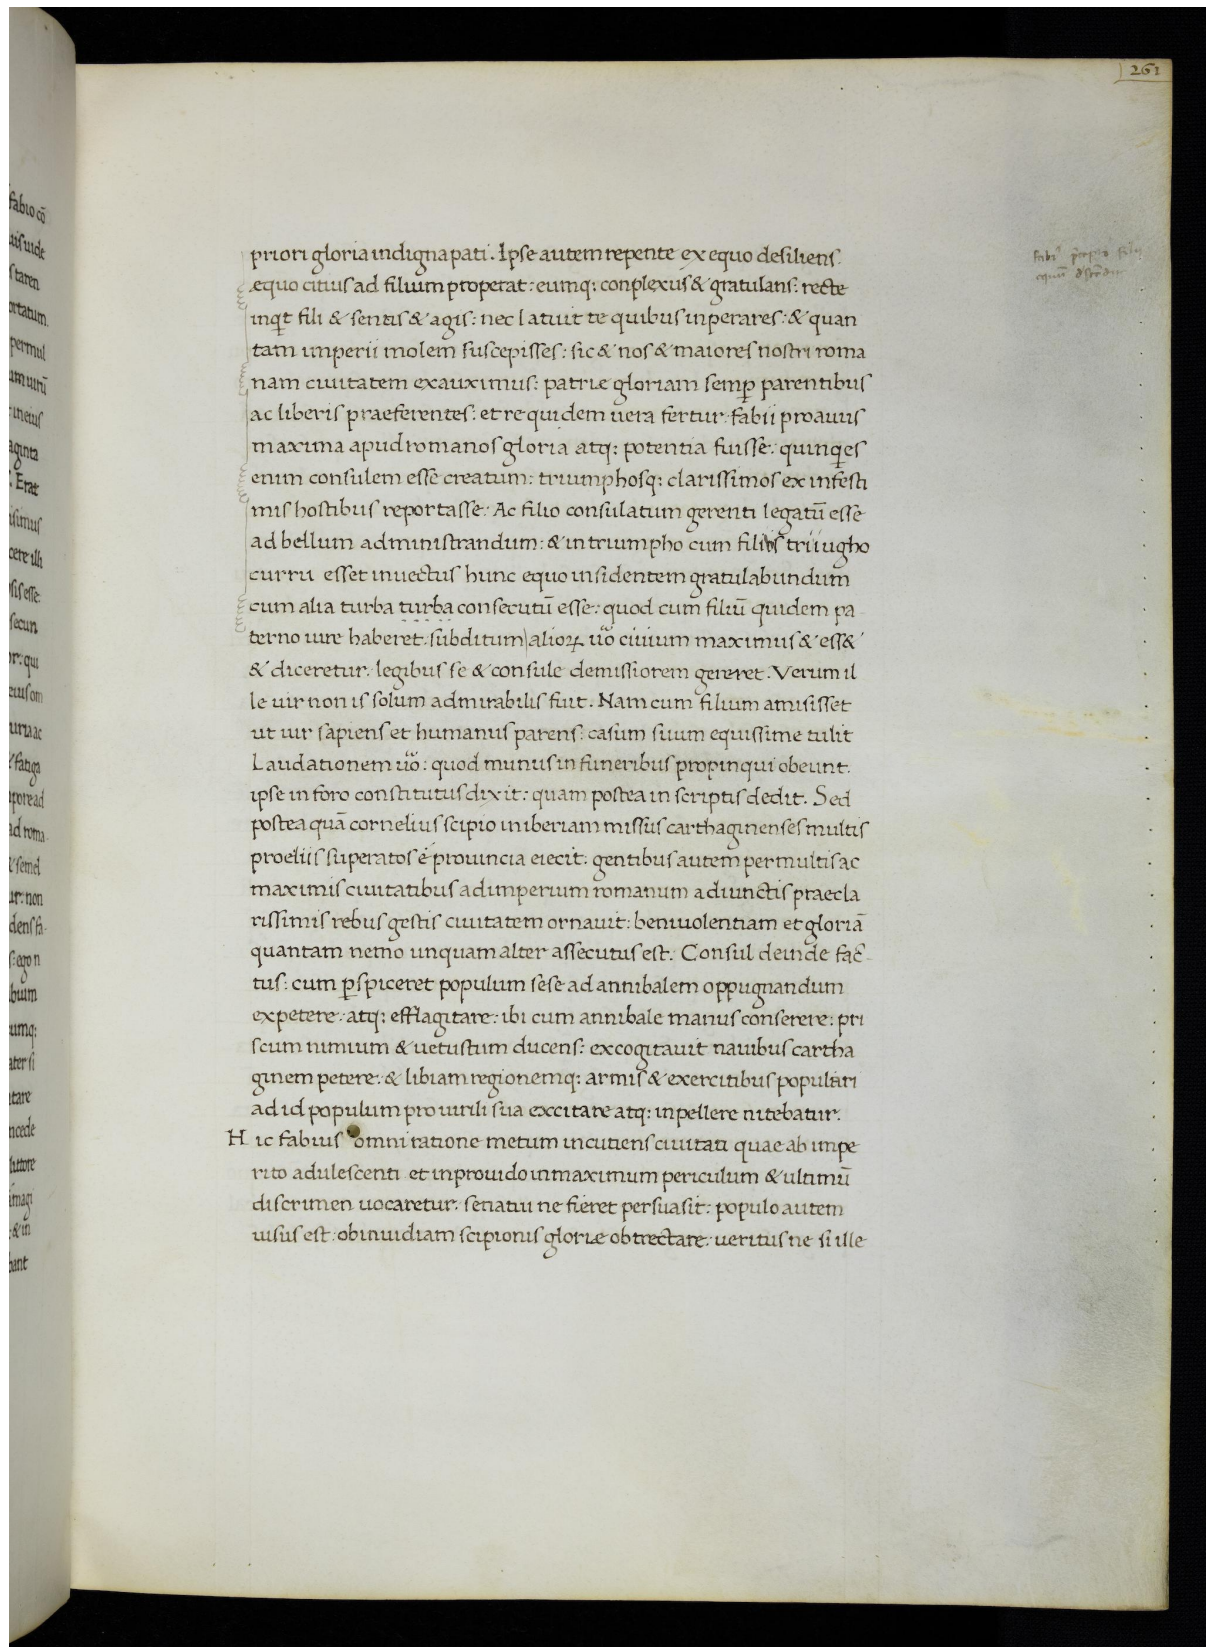 261
priori gloria indigna pati. Ipse autem repente ex equo desiliens
æquo citius ad filium properat: eumq; conplexus & gratulans: recte
inqt fili & sentis & agis: nec latuit te quibus inperares: & quan
tam imperii molem suscepisses: sic & nos & maiores nostri roma
nam ciuitatem exauximus: patriæ gloriam semp parentibus
ac liberis praeferentes: et re quidem uera fertur fabii proauus
maxima apud romanos gloria atq; potentia fuisse: quinqes
enim consulem esse creatum: triumphosq; clarissimos ex infesti
mis hostibus reportasse: Ac filio consulatum gerenti legatū esse
ad bellum administrandum: & in triumpho cum filius triiugho
curru esset inuectus hunc equo insidentem gratulabundum
cum alia turba turba consecutū esse: quod cum filiū quidem pa
terno iure haberet. subditum alioꝝ uo ciuium maximus & ess&
& diceretur. legibus se & consule demissiorem gereret. Verum il
le uir non is solum admirabilis fuit. Nam cum filium amisisset
ut uir sapiens et humanus parens: casum suum equissime tulit
Laudationem uo: quod munus in funeribus propinqui obeunt.
ipse in foro constitutus dixit: quam postea in scriptis dedit. Sed
postea quā cornelius scipio in iberiam missus carthaginenses multis
proeliis superatos é prouincia eiecit: gentibus autem permultis ac
maximis ciuitatibus ad imperium romanum adiunctis praecla
rissimis rebus gestis ciuitatem ornauit: beniuolentiam et gloriā
quantam nemo unquam alter assecutus est. Consul deinde fac̄
tus: cum ꝑspiceret populum sese ad annibalem oppugnandum
expetere: atq; efflagitare: ibi cum annibale manus conserere: pri
scum nimium & uetustum ducens: excogitauit nauibus cartha
ginem petere: & libiam regionemq; armis & exercitibus populari
ad id populum pro uirili sua excitare atq; inpellere nitebatur.
Hic fabius omni ratione metum incutiens ciuitati quae ab impe
rito adulescenti et inprouido in maximum periculum & ultimū
discrimen uocaretur. senatui ne fieret persuasit: populo autem
uisus est: ob inuidiam scipionis gloriæ obtrectare: ueritus ne si ille